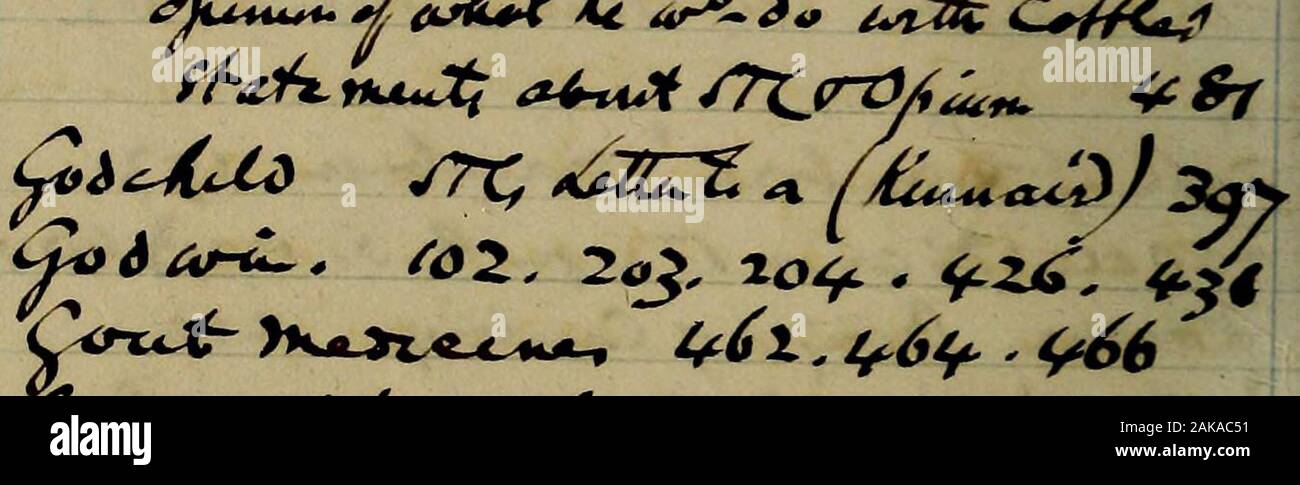 opinion of what he wd do with Cottle's
statements about STC & Opium 481
Godchild STC's Letter to a (Kinnaird) 397
Godwin. 102. 203. 204. 426. 436
Gout Medicines 462. 464. 466
alamy
Image ID: 2AKAC51
www.alamy.com